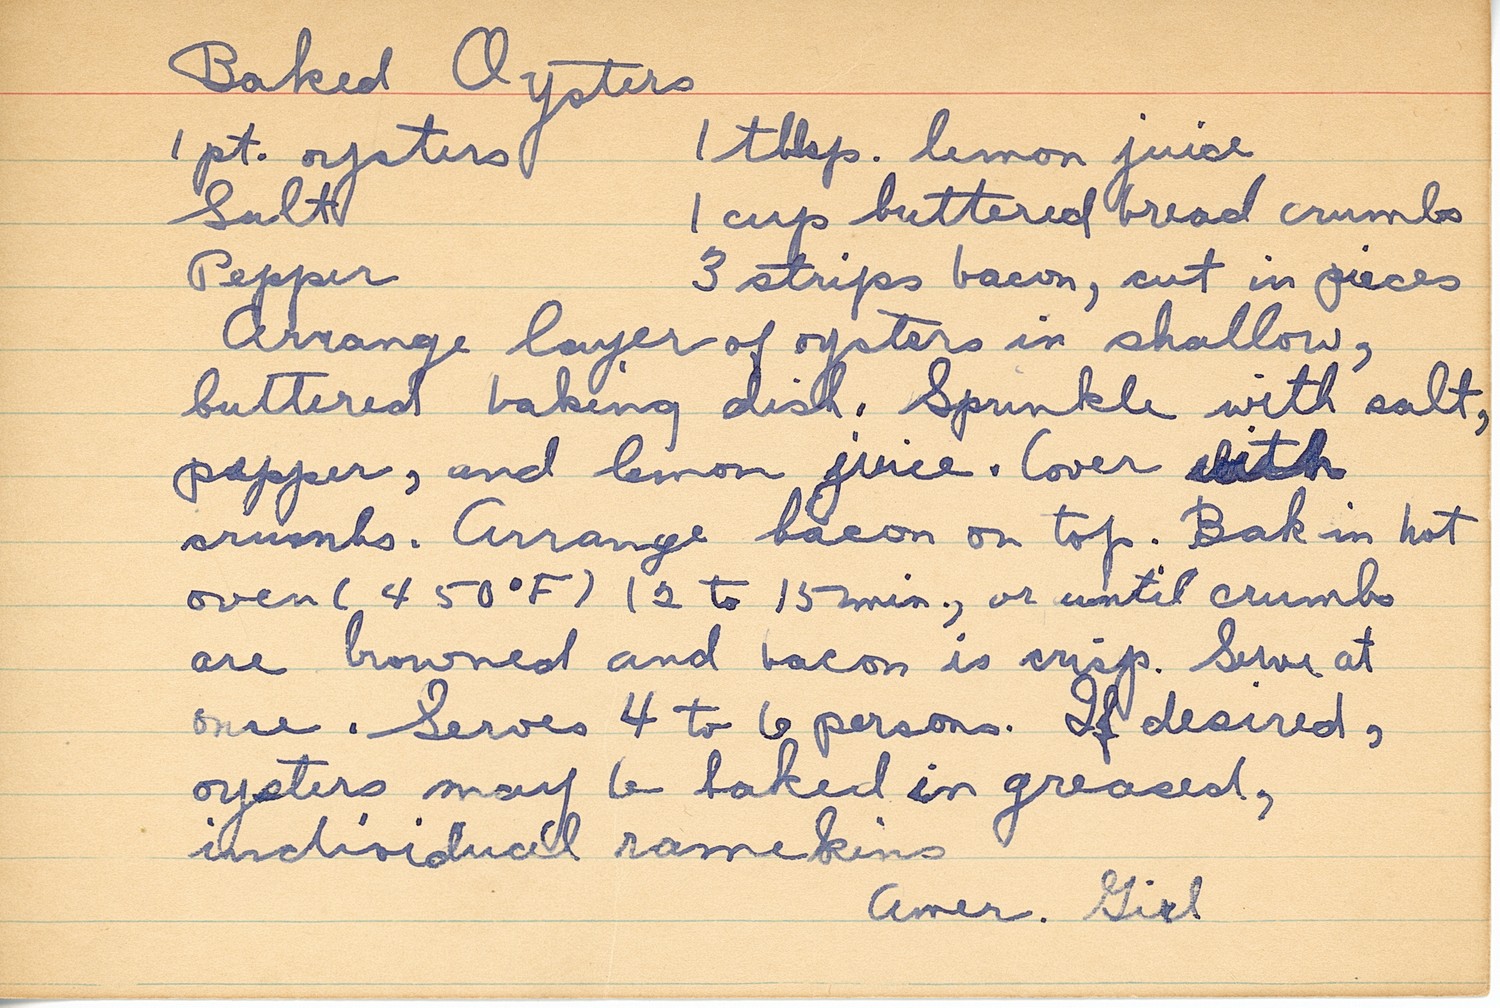 Baked Oysters
1 pt. oysters 1 tbsp. lemon juice
Salt 1 cup buttered bread crumbs
Pepper 3 strips bacon, cut in pieces
Arrange layer of oysters in shallow,
buttered baking dish. Sprinkle with salt,
pepper, and lemon juice. Cover with
crumbs. Arrange bacon on top. Bak in hot
oven (450°F) 12 to 15 min., or until crumbs
are browned and bacon is crisp. Serve at
once. Serves 4 to 6 persons. If desired,
oysters may be baked in greased,
individual ramekins
Amer. Girl